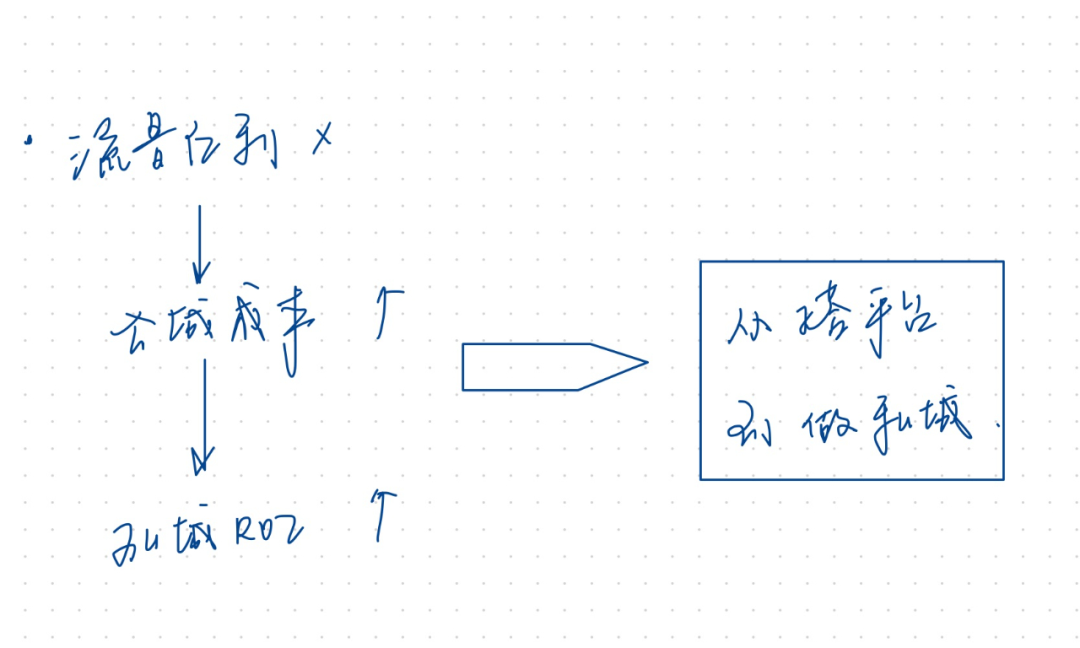 · 流量红利 ×
↓
公域成本 ↑
↓
私域 ROI ↑
从搭平台
到做私域.